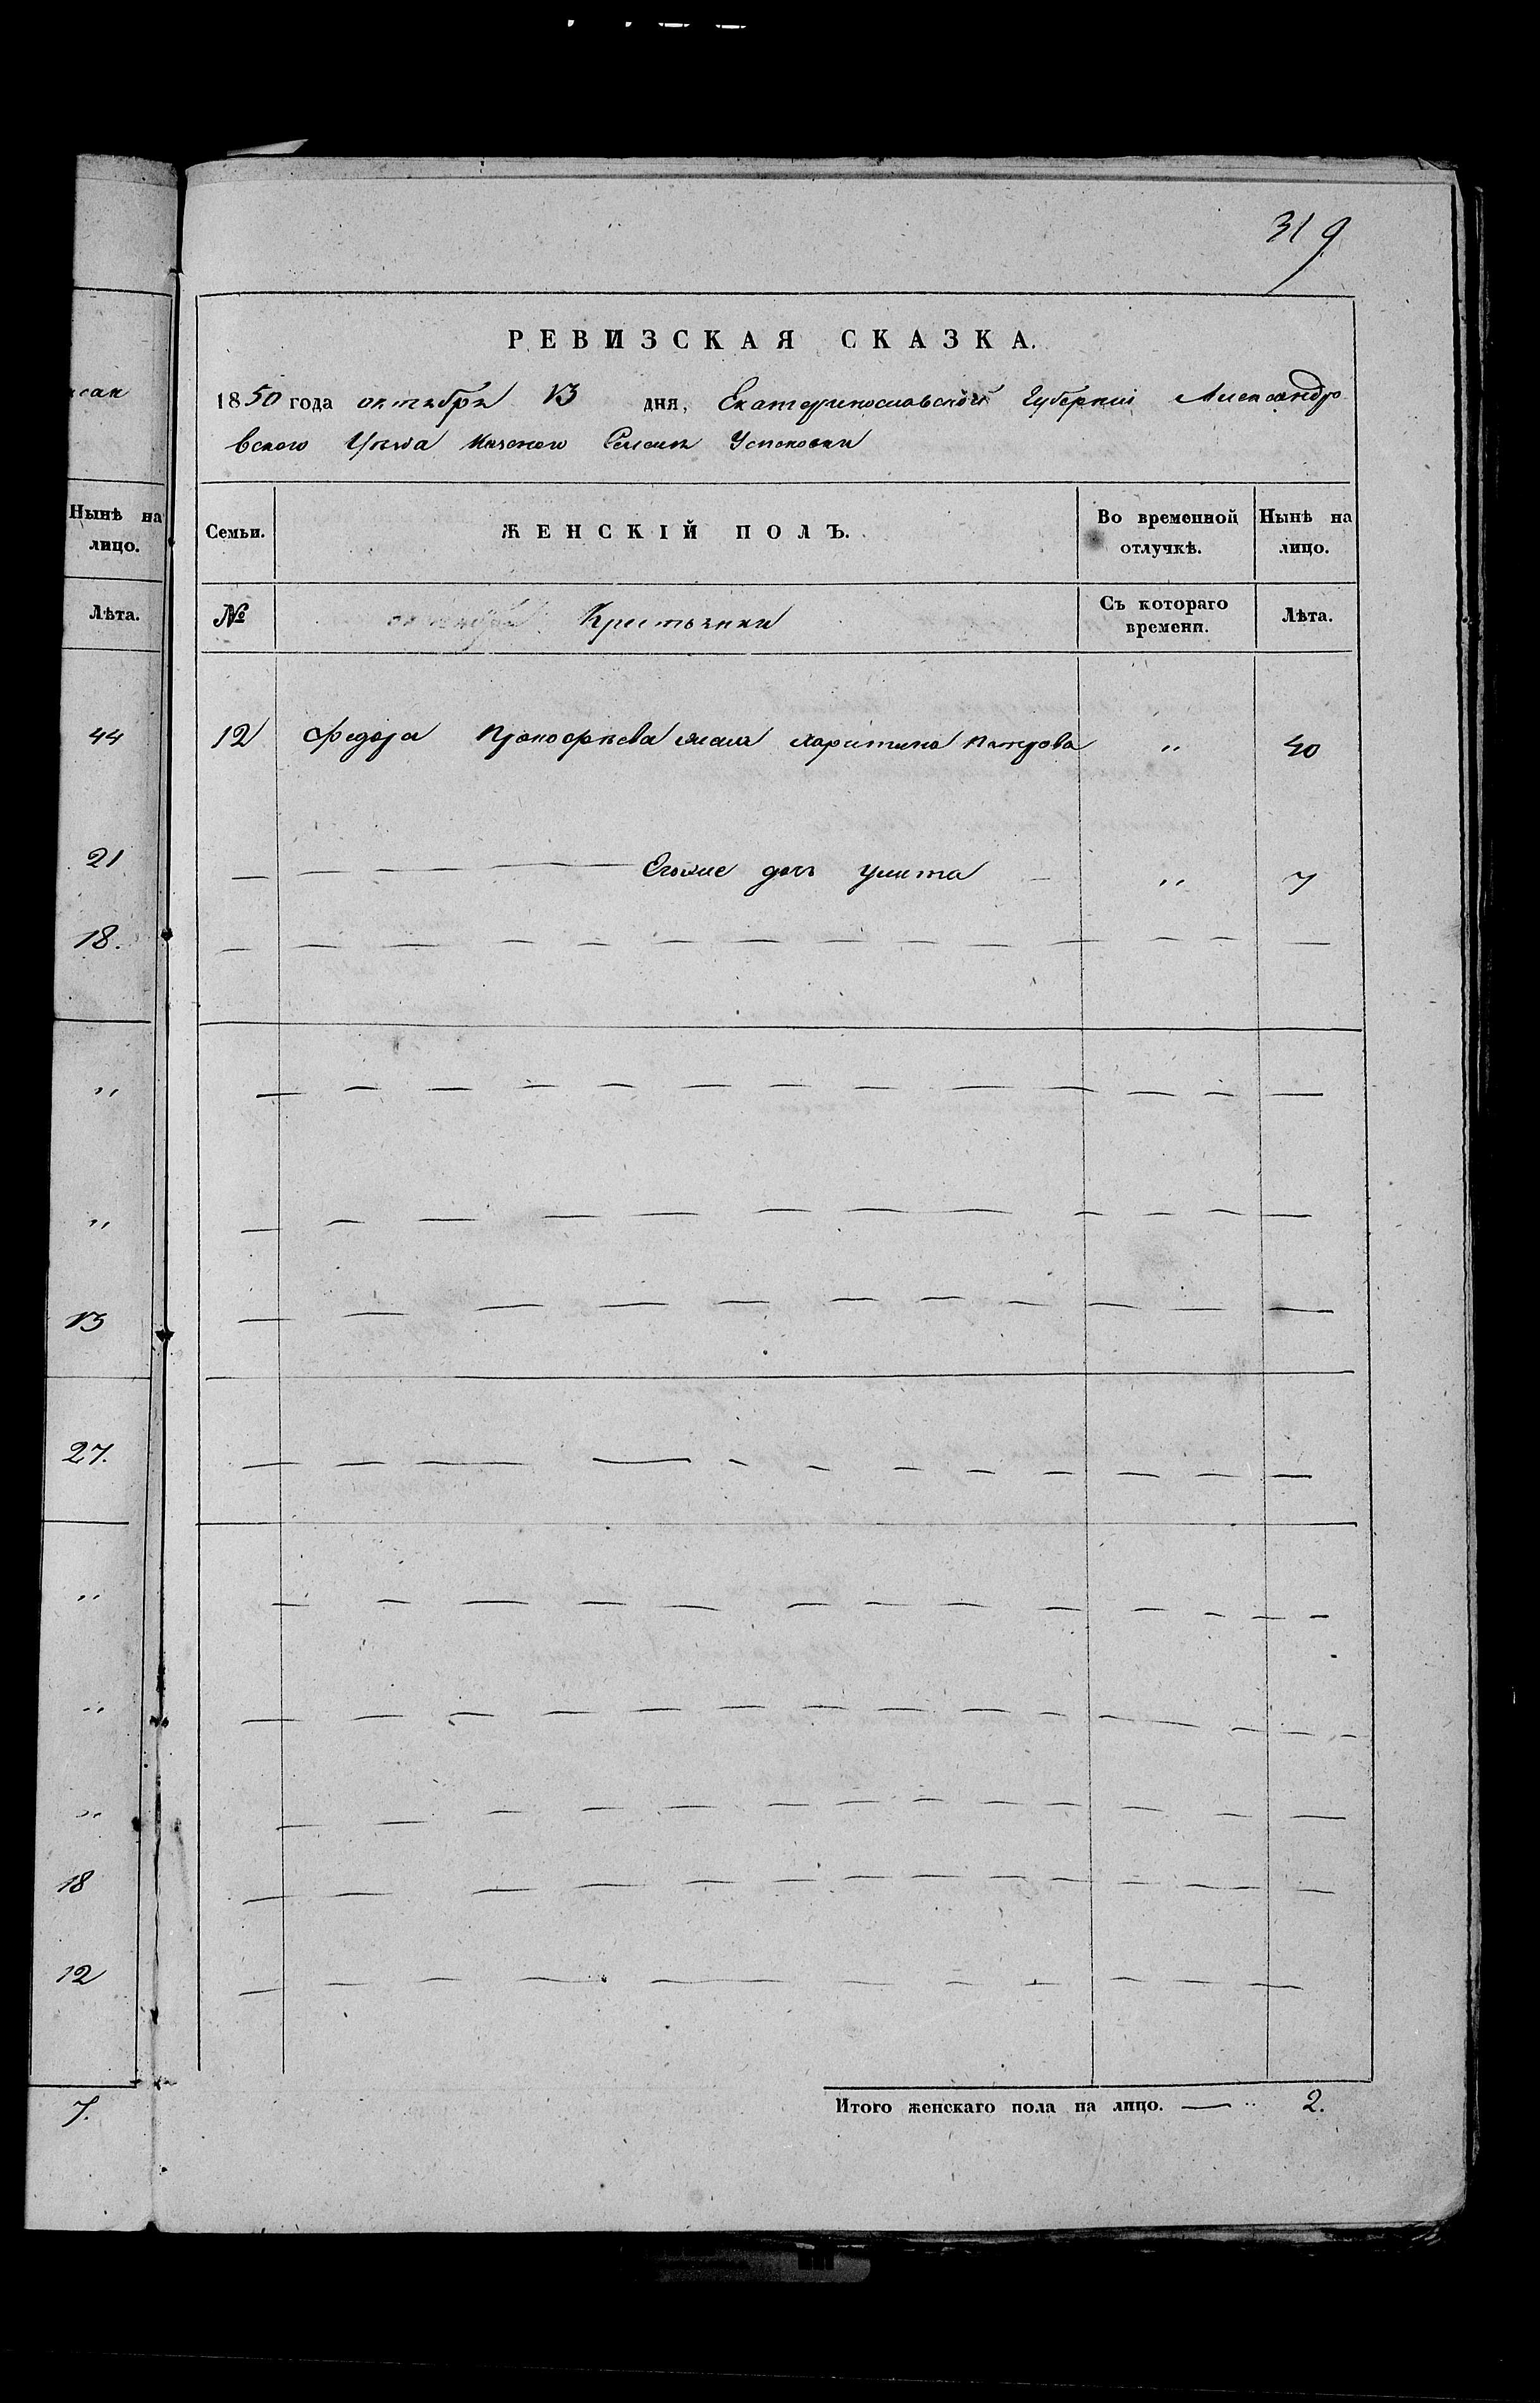 319
РЕВИЗСКАЯ СКАЗКА.
1850 года октября 13 дня, Екатеринославской Губернии Александро
вского Уезда Казеного Селения Успеновки
Семьи. ЖЕНСКІЙ ПОЛЪ. Во временной отлучкѣ. Нынѣ на лицо.
№ Крестьянки Съ котораго времени. Лѣта.
12 Федора Прокофьева жена Харитина Петрова " 40
Егоже дочь Улита " 7
Итого женскаго пола на лицо. — " 2.
Нынѣ на
лицо.
Лѣта.
44
21
18.
"
"
13
27.
"
"
"
18
12
7.